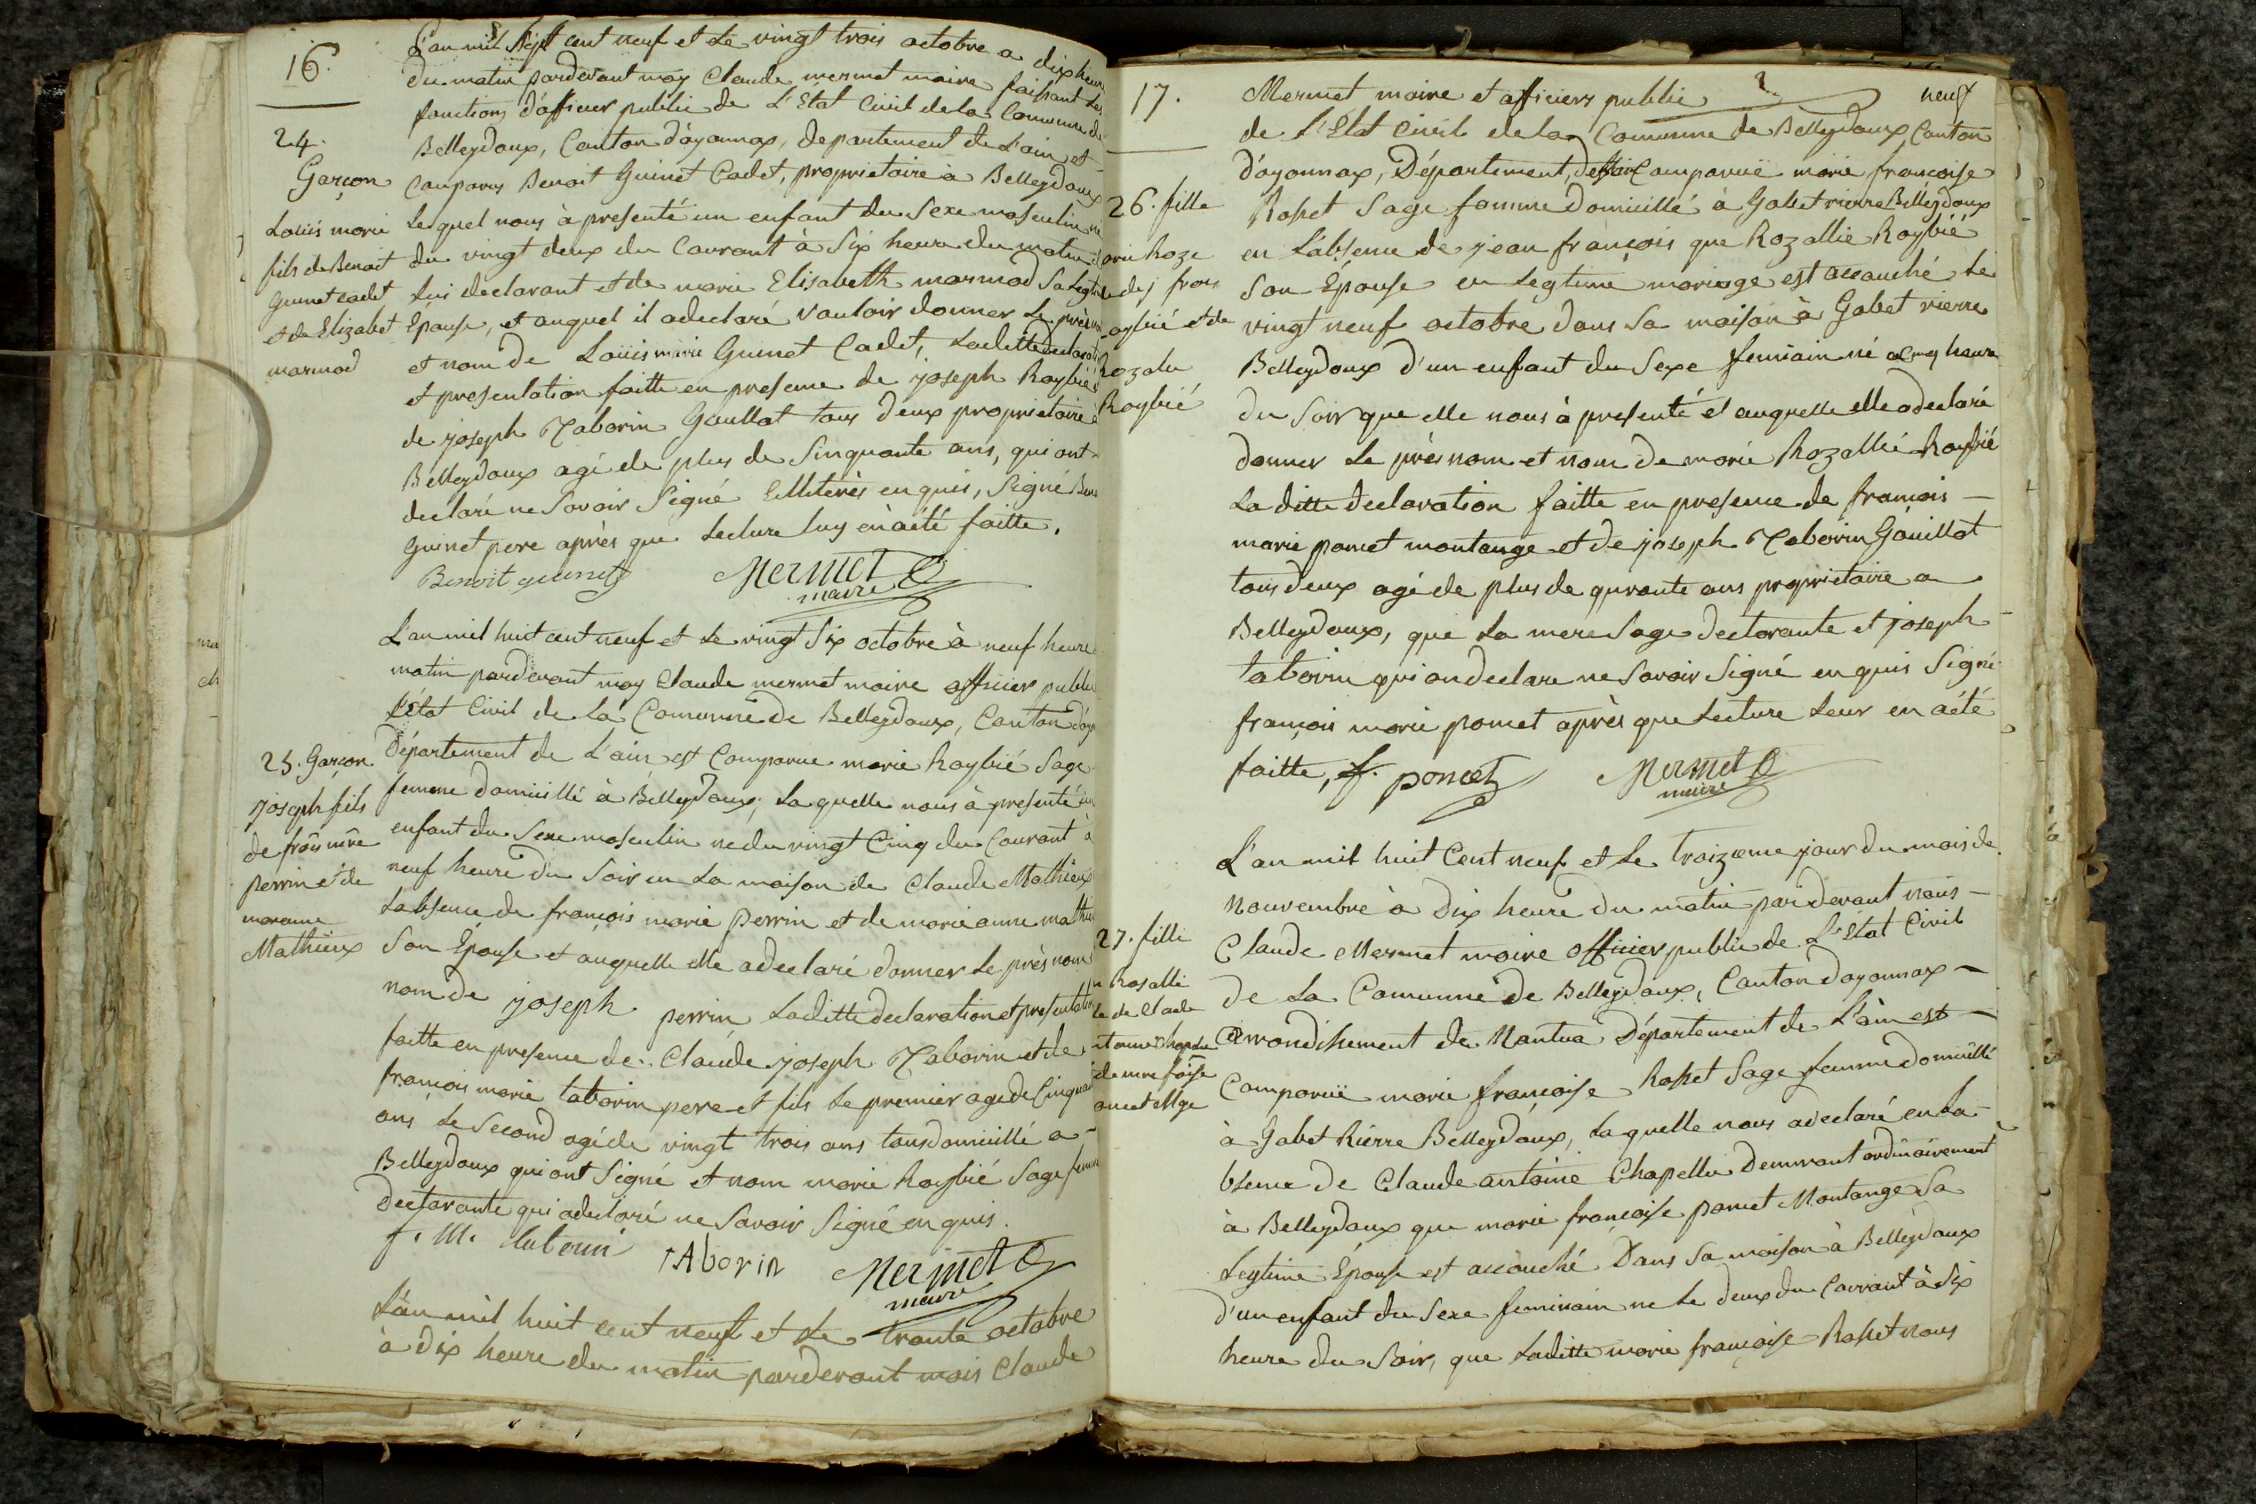 16.
L'an mil sept cent neuf et le vingt trois octobre a dix heure
du matin pardevant moy Claude mermet maire faissant les
fonctions d'officier public de L'Etat Civil de la Commune de
Belleydoux, Canton d'ayonnax, departement de L'ain et
comparus Benoit Guinet Cadet, proprietaire à Belleydoux
Lequel nous à presenté un enfant du Sexe masculin ne
du vingt deux du Courant à Six heure du matin
Lui declarant et de marie Elisabeth marmod Sa Legti
Epouse, et auquel il a declaré vouloir donner Le près
et nom de Loüis marie Guinet Cadet, Laditte declarati
et presentation faitte en presence de joseph Raybié
de joseph Taborin Gouillot tous deux proprietaire à
Belleydoux agé de plus de Sinquante ans, qui ont
declaré ne Savoir Signé Illiterès enquis, Signé Ben
Guinet pere après que Lecture luy en à été faitte.
Benoit guinet Mermet
maire
24.
Garçon
Loüis marie
fils de Benoit
Guinet cadet
et de Elizabet
marmod
L'an mil huit cent neuf et Le vingt Six octobre à neuf heure
matin pardevant moy Claude mermet maire officier public
L'état Civil de La Commune de Belleydoux, Canton d'oy
Département de L'ain est Comparue marie Raybié Sage
femme domicillé à Belleydoux, La quelle nous à presenté un
enfant du Sexe masculin ne du vingt Cinq du Courant à
neuf heure du Soir en La maison de Claude Mathieux
Labsence de françois marie perrin et de marie anne mathieu
Son Épouse et auquelle elle a declaré donner Le près nom
nom de joseph perrin Laditte declaration et presentation
faitte en presence de Claude joseph Taborin et de
françois marie taborin pere et fils Le premier agé de Cinquan
ans, Le Second agé de vingt trois ans tous domicillé a
Belleydoux qui ont Signé et nom marie Raybié Sage femme
declarante qui a declaré ne Savoir Signé enquis.
f. M. tabourin tAborin Mermet
maire
25. Garçon.
joseph fils
de frôis mrie
perrin et de
marianne
Mathieux
L'an mil huit cent neuf et Le trante octobre
à dix heure du matin pardevant mois Claude
17.
Mermet maire et officiers public neuf
de L'Etat Civil de la Commune de Belleydoux Canton
d'ayonnax, Département, de l'ain Comparuë marie françoise
Rosset Sage femme domicillé à Gobet rierre Belleydoux
en L'absence de jean françois que Rozallie Raybié
Son Épouse en Legtime mariage est accouché Le
vingt neuf octobre dans Sa maison à Gobet rierre
Belleydoux d'un enfant du Sexe feminain né a Cinq heure
du Soir que elle nous à presenté et auquelle elle a declaré
donner Le près nom et nom de marie Rozallié Raybié
La ditte declaration faitte en presence de francois
marie poncet montange et de joseph Taborin Gouillot
tous deux agé de plus de qurante ans proprietaire a
Belleydoux, que La mere Sage declarante et joseph
taborin qui on declare ne Savoir Signé enquis Signé
françois marie poncet après que Lecture Leur en a été
faitte, f. poncet Mermet
maire
26. fille
arie Roze
de j frois
aybié et de
Rozalie
Raybié
L'an mil huit Cent neuf et Le traizeme jour du mois de
Nouvembre à Dix heure du matin par devant nous
Claude Mermet maire officier public de L'état Civil
de La Commune de Belleydoux, Canton d'oyonnax
arrondissement de Nantua Département de L'ain est
Comparuë marie françoise Rosset Sage femme domicillé
à Gobet Rierre Belleydoux, La quelle nous a declaré en La
bsence de Claude antoine Chapellu demurant ordinairement
à Belleydoux que marie françoise poncet Montange Sa
Legtime Épouse est accouché Dans Sa maison à Belleydoux
d'un enfant du Sexe feminain ne Le deux du Courrant à Six
heure du Soir, que Laditte marie françoise Rosset nous
27. fille
Rosalli
de Claude
antoine Chapelu
de mrie frôise
poncet Mge